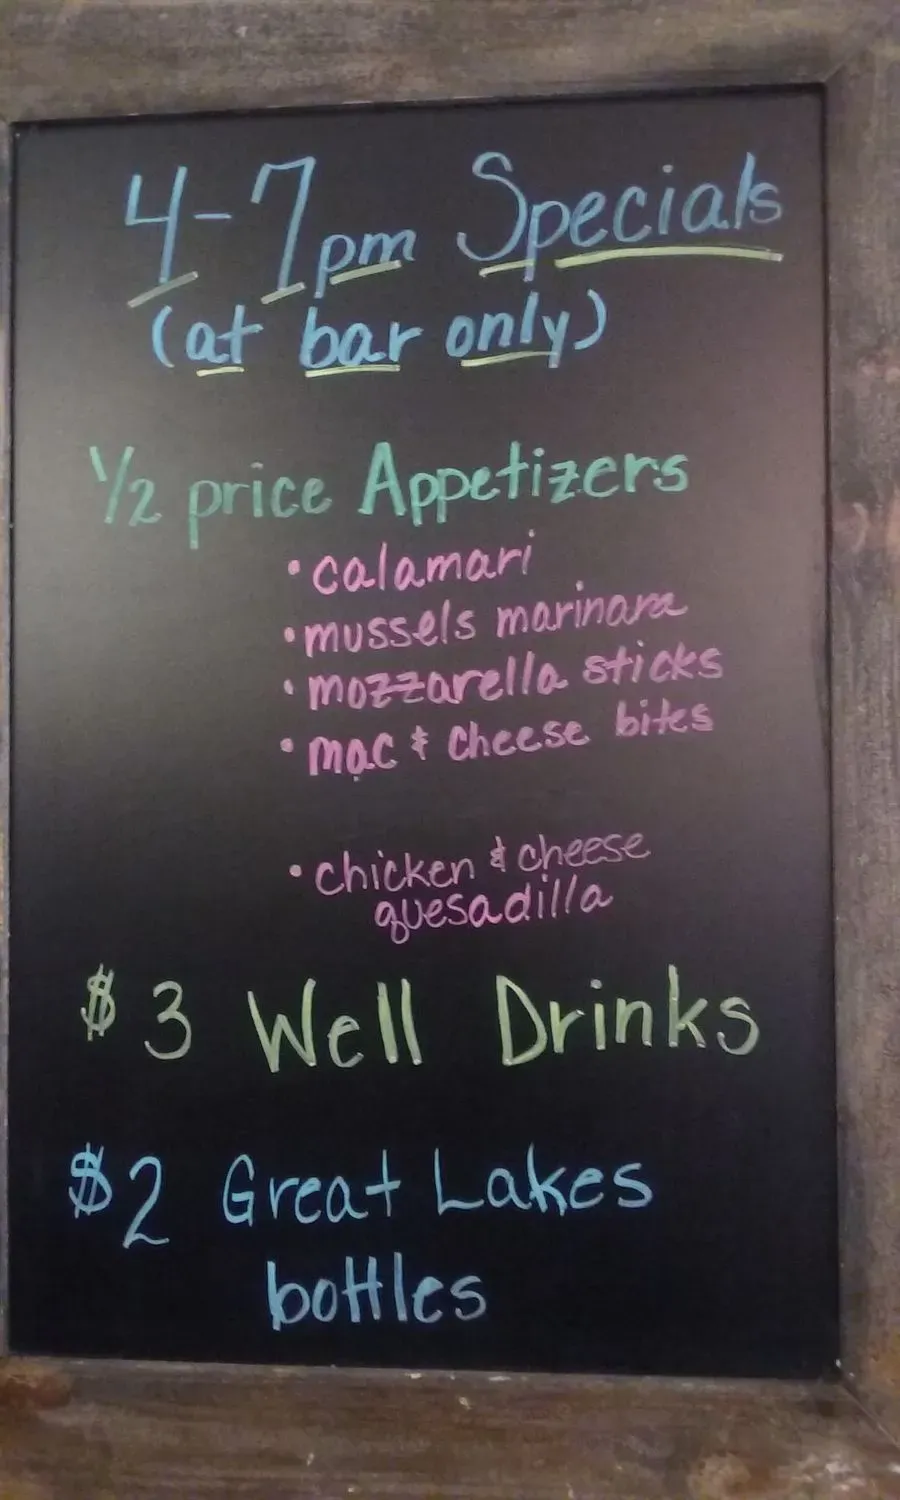 4-7pm Specials
(at bar only)
1/2 price Appetizers
• calamari
• mussels marinara
• mozzarella sticks
• mac & cheese bites
• chicken & cheese
quesadilla
$3 Well Drinks
$2 Great Lakes
bottles